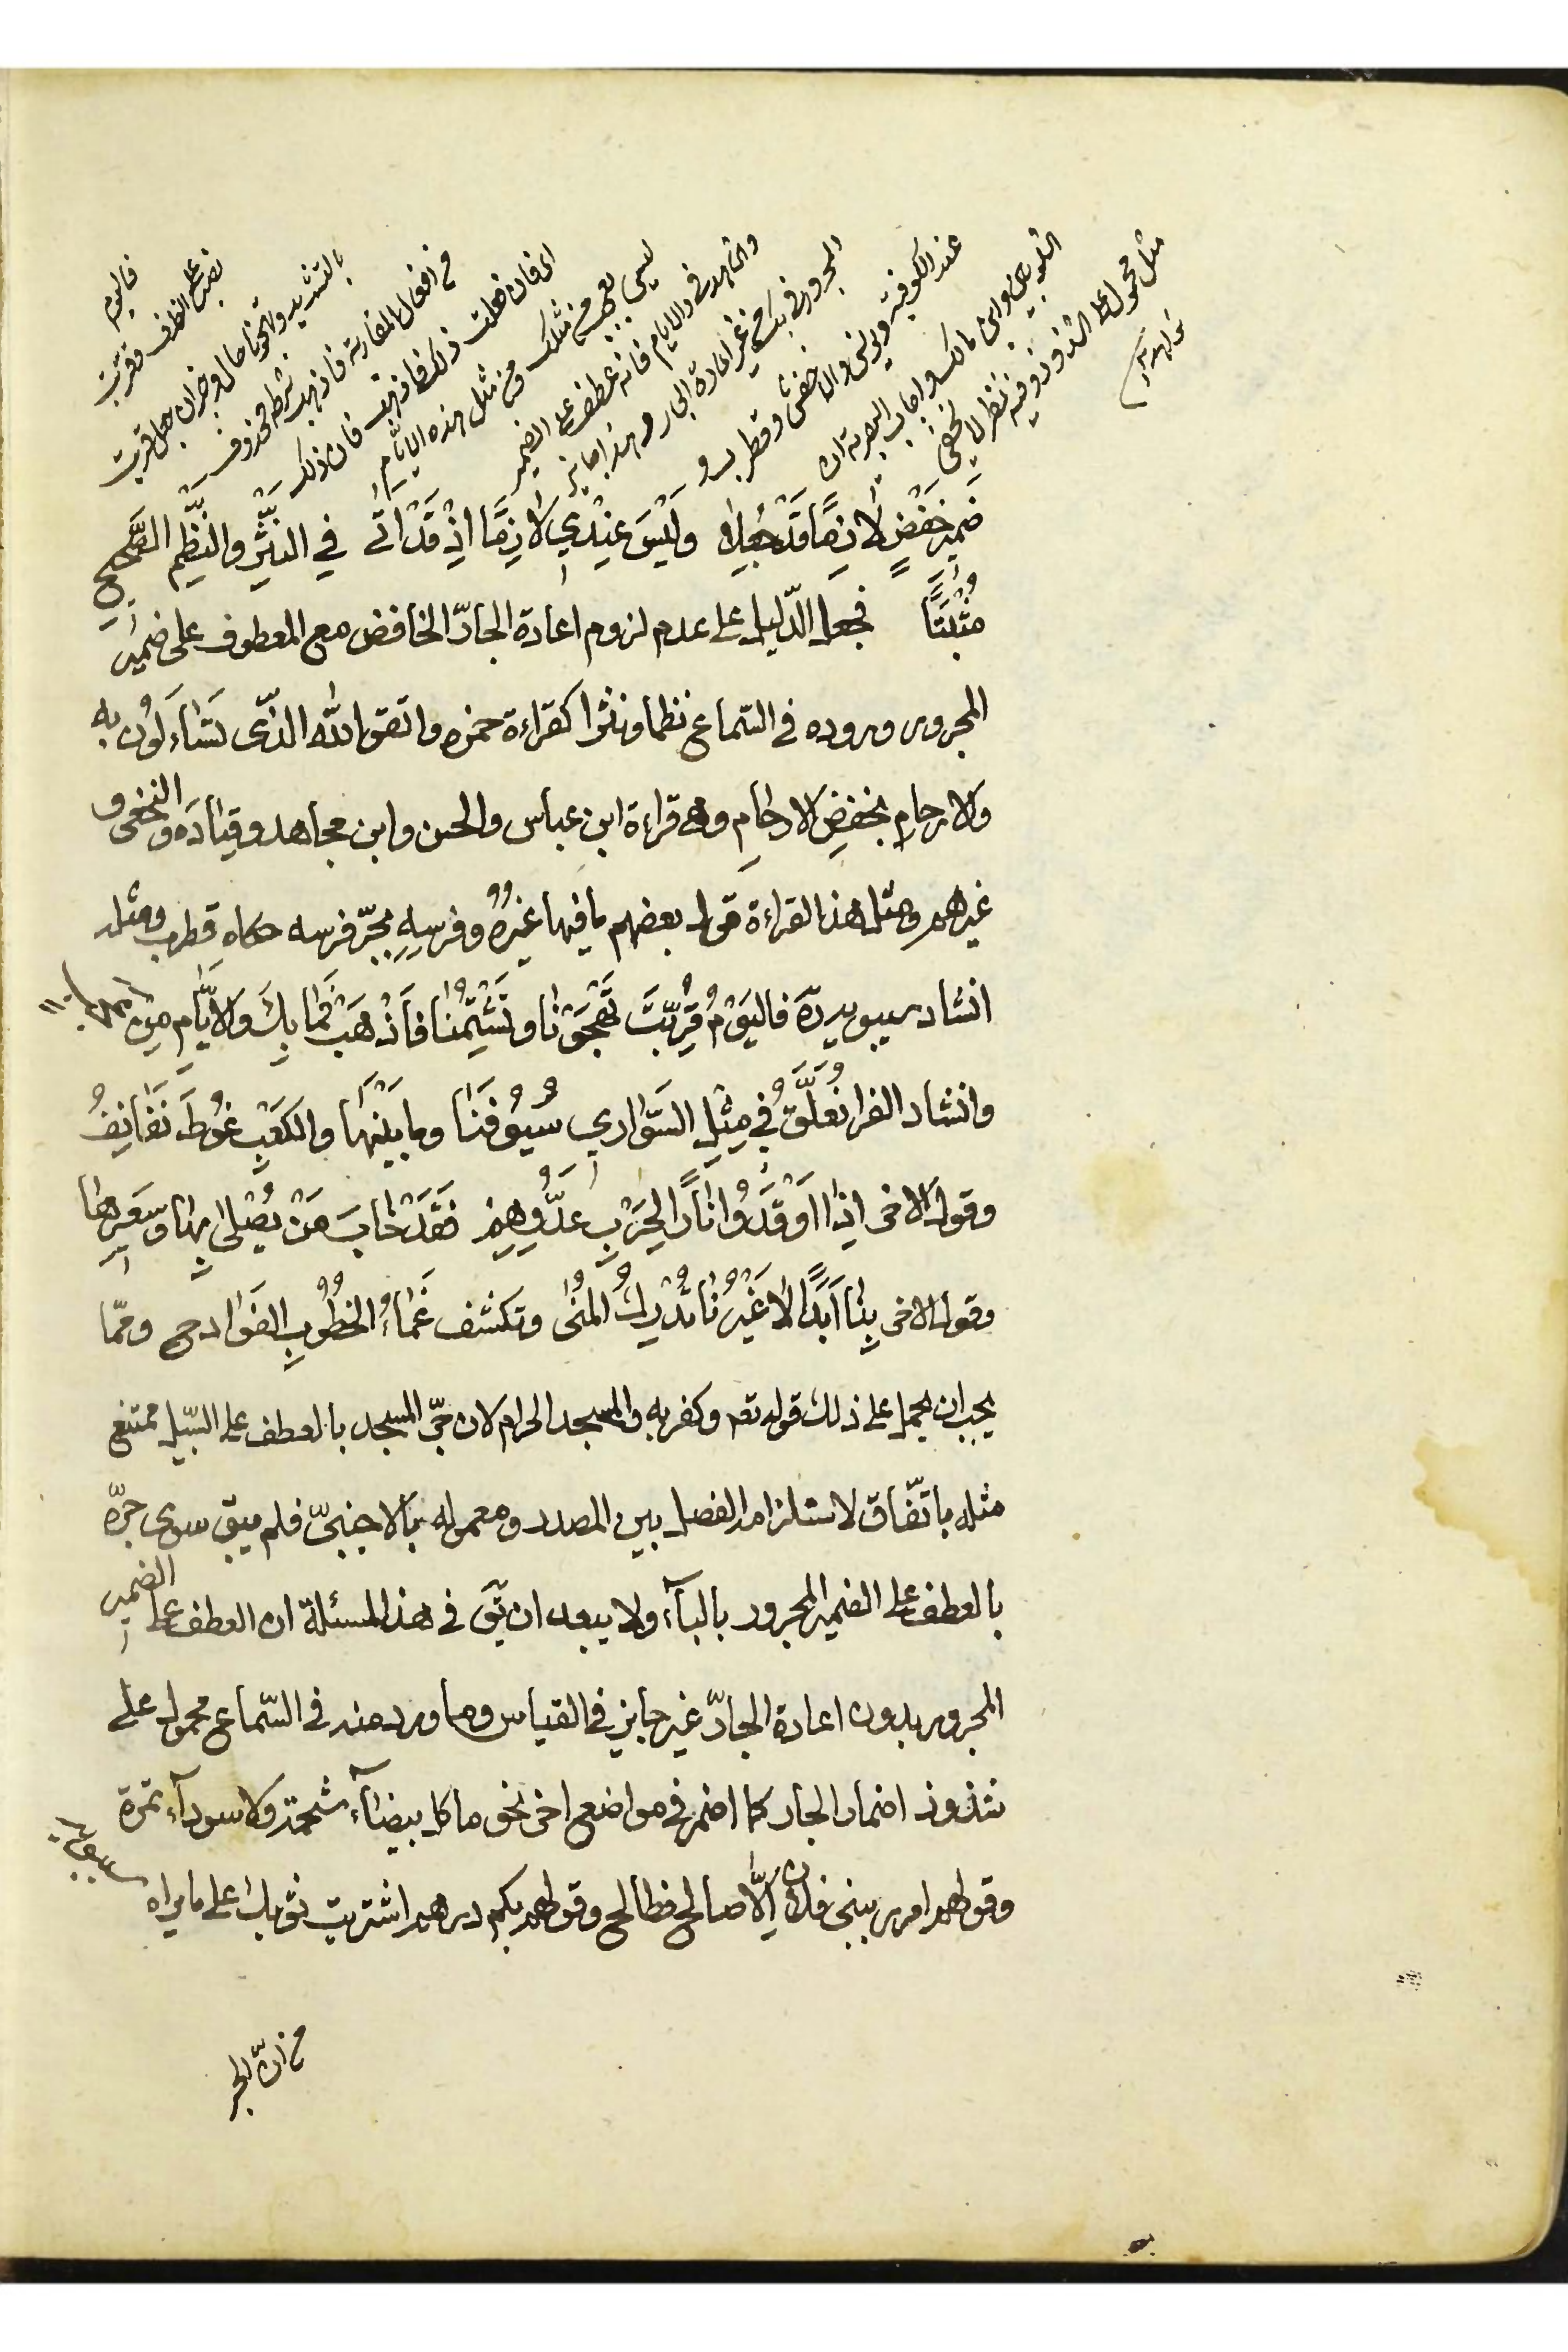 فاليوم
نصب على الظرف وقربت
بالتشديد وتهجونا حال وخبر ان جعل قربت
من افعال المقاربة فاذهب شرطه محذوف
اى فان فعلت ذلك فاذهب فان ذلك
ليس بعجب من مثلك ومن مثل هذه الايام
والشاهد فى والايام فانه عطف على الضمير
المجرور فى بك من غير اعادة الجار وهذا جايز
عند الكوفية ويونس والاخفش وقطرب و
الشلوبين وابن مالك واجاب البصرية ان
مثل محمول على الشذوذ وفيه نظر لا يخفى
شواهد
ضَمِيرِ خَفْضٍ لَازِمًا قَدْ جُعِلَا وَلَيْسَ عِنْدِي لَازِمًا اِذْ قَدْ اَتٰى فِي النَّثْرِ وَالنَّظْمِ الصَّحِيحِ
مُثْبَتًا فجعل الدّليل على عدم لزوم اعادة الجارّ الخافض مع المعطوف على ضمير
المجرور وروده فى السّماع نظما ونثرا كقراءة حمزه واتقوا الله الذّى تَسَّاءَلُونَ به
والارحامِ بخفضِ الارحامِ وهى قراءة ابن عباس والحسن وابن مجاهد وقتادَه والنخعى و
غيرهم ومثل هذا القراءة قول بعضهم ما فيها غيرُهُ وفرسِهِ بجرّ فرسه حكاه قطرب ومثله
انشاد سيبويه فاليَوْمَ قَرَّبْتَ تَهْجُوْنَا وتَشْتِمُنَا فَاذْهَبْ فَمَا بِكَ وَالْاَيَّامِ مِنْ عجب
وانشاد الفرا نُعَلِّقُ فِي مِثْلِ السَّوَارِي سُيُوْفَنَا وما بَيْنَهَا والكَعْبِ غُوطٌ نَفَانِفُ
وقول الاخر اِذَا اَوْقَدُوْا نَارًا لِحَرْبِ عَدُوِّهِمْ فَقَدْ خَابَ مَنْ يَصْلٰى بِهَا وَسَعِيرِهَا
وقول الاخر بِنَا اَبَدًا لَا غَيْرِنَا تُدْرَكُ المُنٰى وتكشف غَمَاءُ الخُطُوبِ الفَوَادِحِ وممّا
يجب ان يحمل على ذلك قوله تعه وكفر به والمسجد الحرام لان جرّ المسجد بالعطف على السّبيل ممتنع
مثله باتّفاق لاستلزامه الفصل بين المصدر ومعموله بالاجنبىّ فلم يبق سوى جرّه
بالعطف على الضمير المجرور بالبآء ولا يبعد ان يّق فى هذه المسئلة ان العطف على الضمير
المجرور بدون اعادة الجارّ غير جايز فى القياس وما ورد منه فى السّماع محمول على
شذوذ اضمار الجار كما اضمر فى مواضع اخر نحو ما كل بيضآء شحمة ولا سودآء تمرة
وقولهم امرر ببنى فلان اِلَّا صالح فطالح وقولهم بكم درهم اشتريت ثوبك على ما يراه
من ان الجر